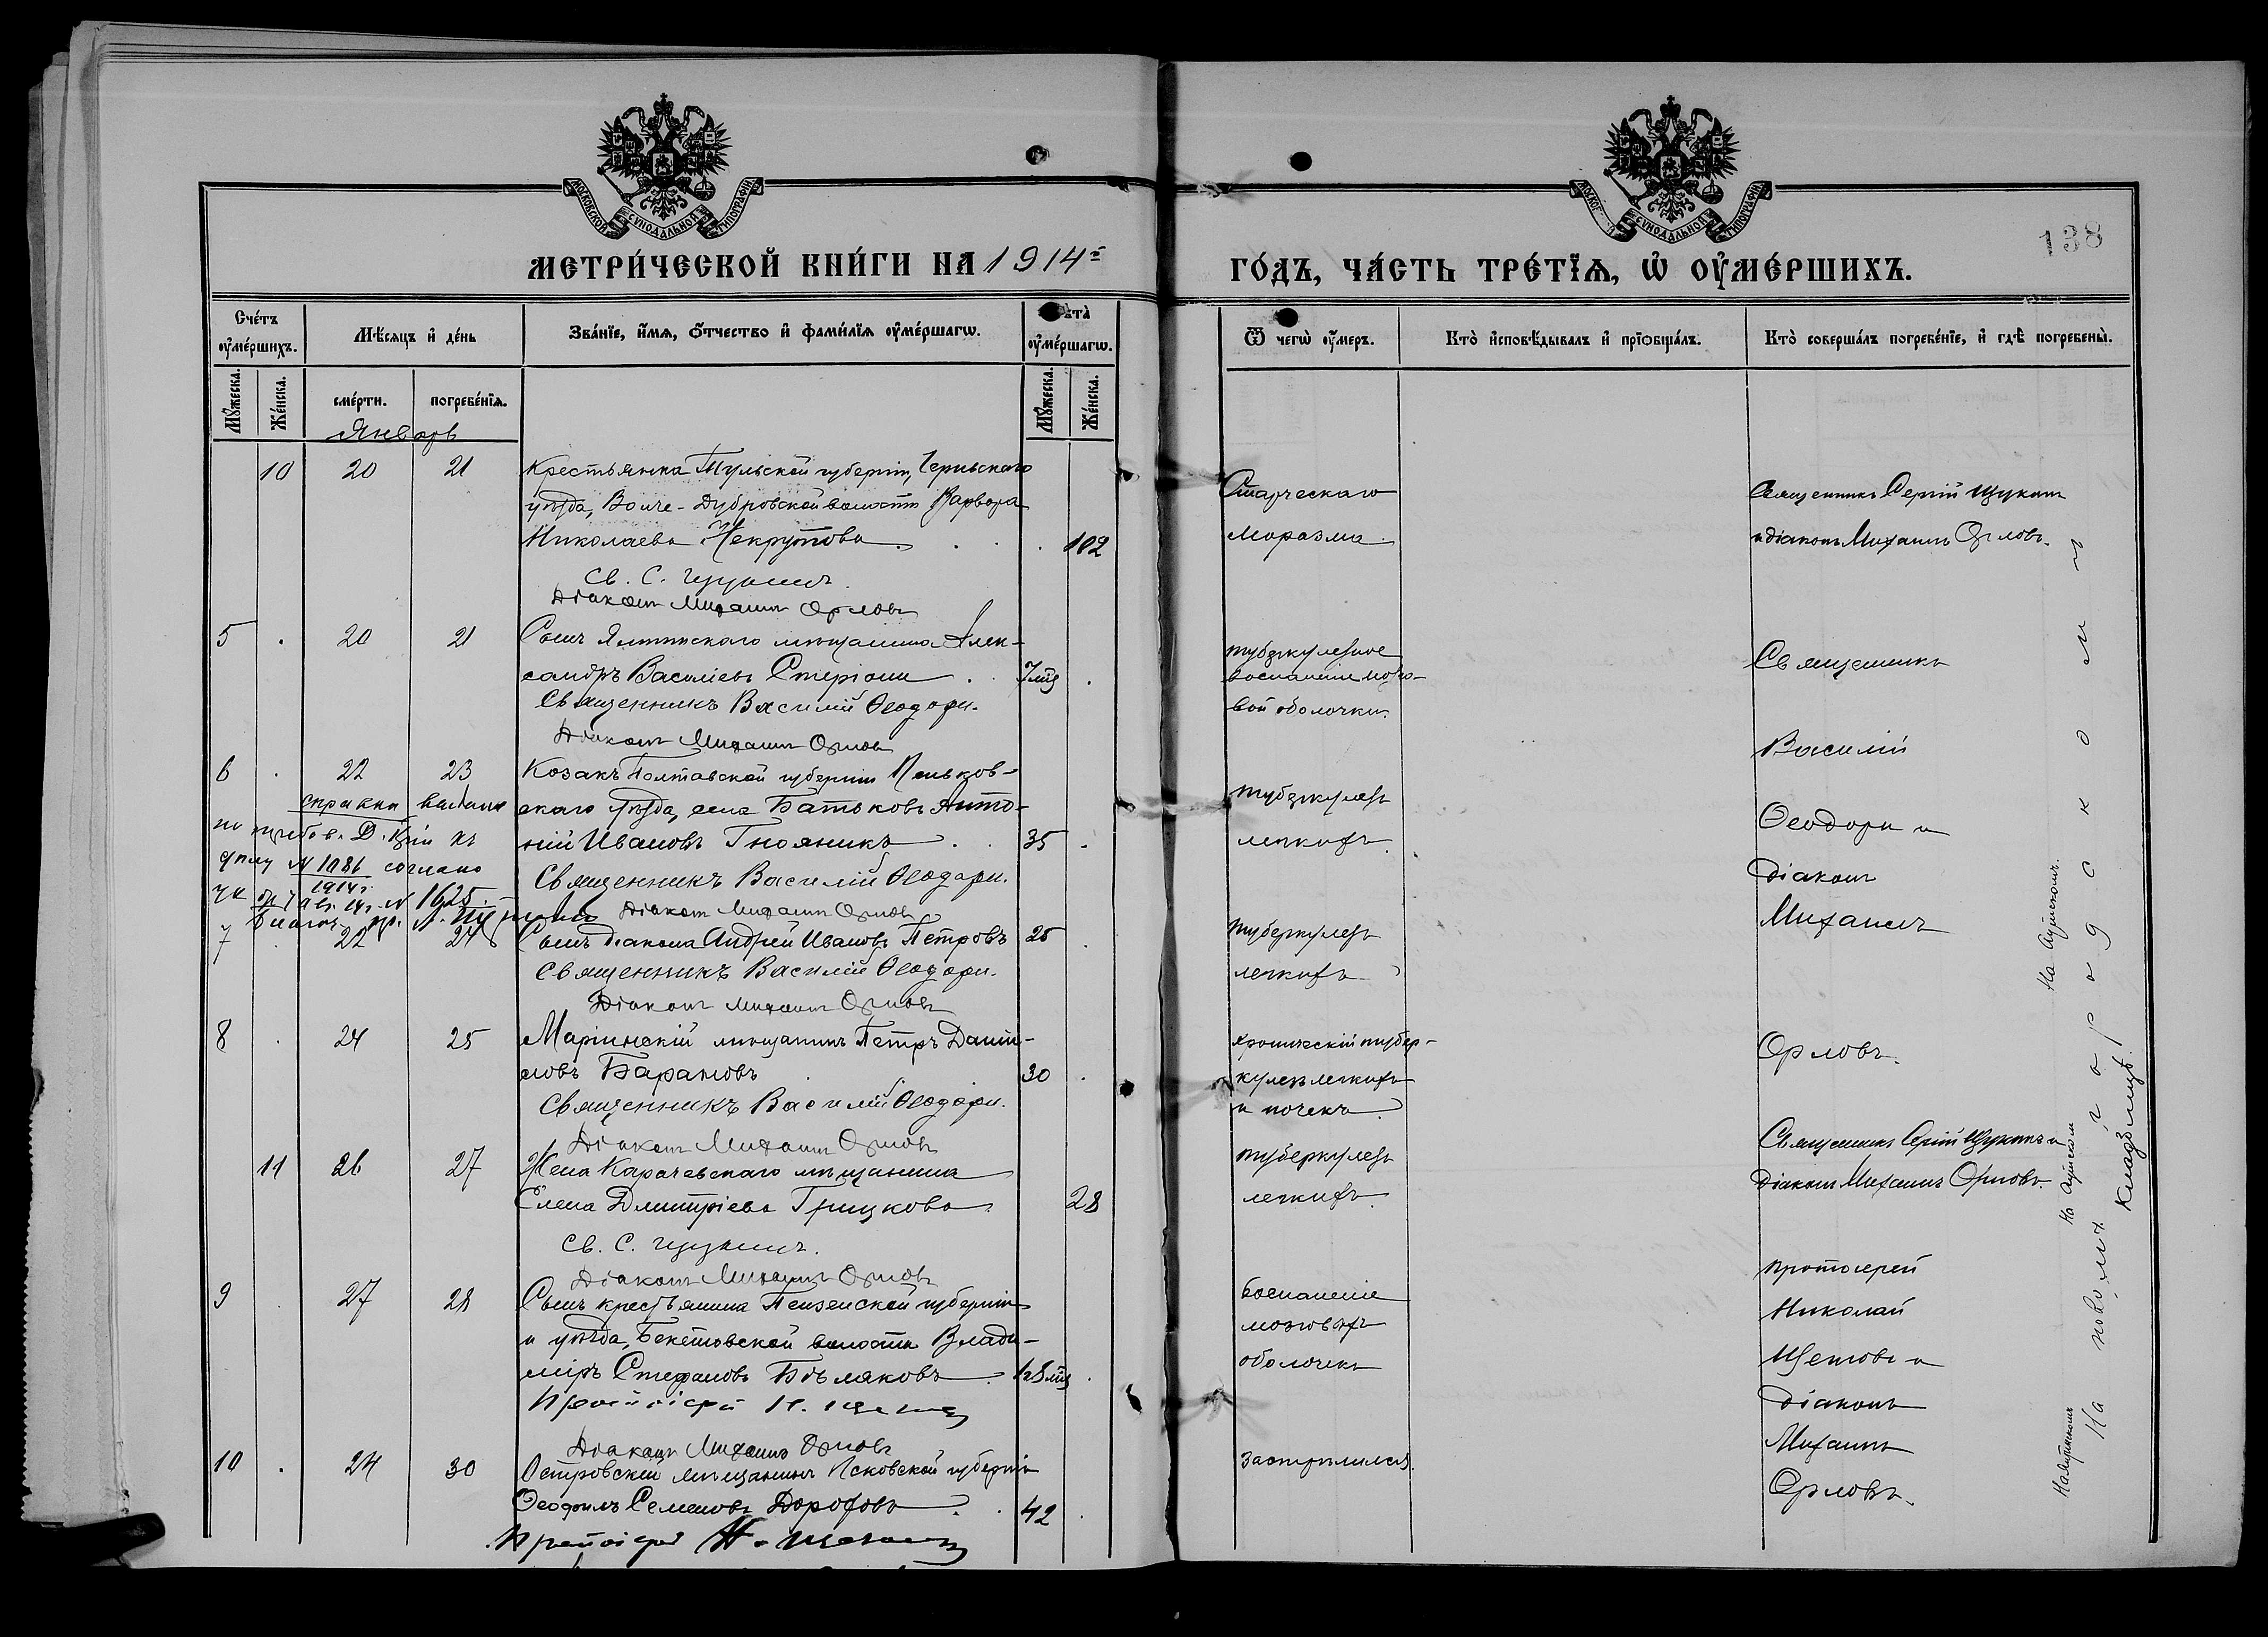 МОСКОВСКОЙ СУНОДАЛЬНОЙ ТИПОГРАФІИ
МЕТРИ́ЧЕСКОЙ КНИ́ГИ НА 1914й
Сче́тъ ᲂу҆ме́ршихъ.
Мѣ́сяцъ и҆ де́нь
Зва́нїе, и҆́мѧ, ѻ҆́тчество и҆ фами́лїѧ ᲂу҆ме́ршагѡ.
ᲂу҆ме́ршагѡ.
Мꙋ́жеска.
Же́нска.
сме́рти.
погребе́нїѧ.
Мꙋ́жеска.
Же́нска.
Январь
10 20 21 Крестьянка Тульской губерніи, Чернскаго
уѣзда, Волче-Дубровской волости Варвара
Николаева Некрутова 102
Св. С. Щукинъ.
Діаконъ Михаилъ Орловъ
5 20 21 Сынъ Ялтинскаго мѣщанина Алек-
сандръ Василіевъ Стеріони 7 мц
Священникъ Василій Ѳеодори.
Діаконъ Михаилъ Орловъ
6 22 23 Козакъ Полтавской губерніи
скаго уѣзда, села Батьковъ Анто-
ній Ивановъ Гнояникъ 35
Священникъ Василій Ѳеодори.
Діаконъ Михаилъ Орловъ
справка выдана
по требов. Д. К-ріи къ
дѣлу № 1086 согласно
1914 г.
14 г. № 1625.
7 22 24 Сынъ діакона Андрей Ивановъ Петровъ 25
Священникъ Василій Ѳеодори.
Діаконъ Михаилъ Орловъ
8 24 25 Маріинскій мѣщанинъ Петръ Дани-
ловъ Барановъ 30
Священникъ Василій Ѳеодори.
Діаконъ Михаилъ Орловъ
11 26 27 Жена Карачевскаго мѣщанина
Елена Димитріева Грицкова 28
Св. С. Щукинъ.
Діаконъ Михаилъ Орловъ
9 27 28 Сынъ крестьянина Пензенской губерніи
и уѣзда, Бекетовской волости Влади-
міръ Стефановъ Бѣляковъ
Протоіерей Н. Щегловъ
Діаконъ Михаилъ Орловъ
10 24 30 Островскій мѣщанинъ Псковской губерніи
Ѳеофилъ Семеновъ Дорофовъ 42
Протоіерей Н. Щегловъ
СУНОДАЛЬНОЙ ТИПОГРАФІИ
138
ГО́ДЪ, ЧА́СТЬ ТРЕ́ТЇѦ, Ѡ҆ ОУ҆МЕ́РШИХЪ.
Ѿ чегѡ̀ ᲂу҆́меръ.
Кто̀ и҆сповѣ́дывалъ и҆ прїѡбща́лъ.
Кто̀ соверша́лъ погребе́нїе, и҆ гдѣ̀ погребены̀.
Старческаго
маразма.
Священникъ Сергій Щукинъ
и діаконъ Михаилъ Орловъ.
туберкулезное
воспаленіе мозго-
вой оболочки.
Священникъ
Василій
Ѳеодори и
діаконъ
Михаилъ
Орловъ.
туберкулезъ
легкихъ.
туберкулезъ
легкихъ
хроническій тубер-
кулезъ легкихъ
и почекъ.
туберкулезъ
легкихъ.
Священникъ Сергій Щукинъ и
діаконъ Михаилъ Орловъ.
воспаленіе
мозговыхъ
оболочекъ
застрѣлился.
Протоіерей
Николай
Щегловъ и
діаконъ
Михаилъ
Орловъ.
На Аутскомъ.
На Аутском
На ново-
городскомъ
кладбищѣ.